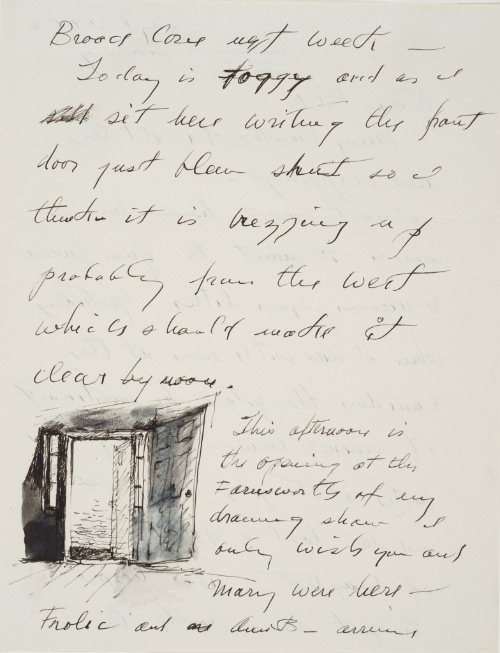 Broad Cove next week —
Today is foggy and as I
sit here writing the front
door just blew shut so I
think it is brezzing up
probably from the west
which should make it
clear by noon.
This afternoon is
the opening at the
Farnsworth of my
drawing show I
only wish you and
Mary were here —
Frolic and — arrive